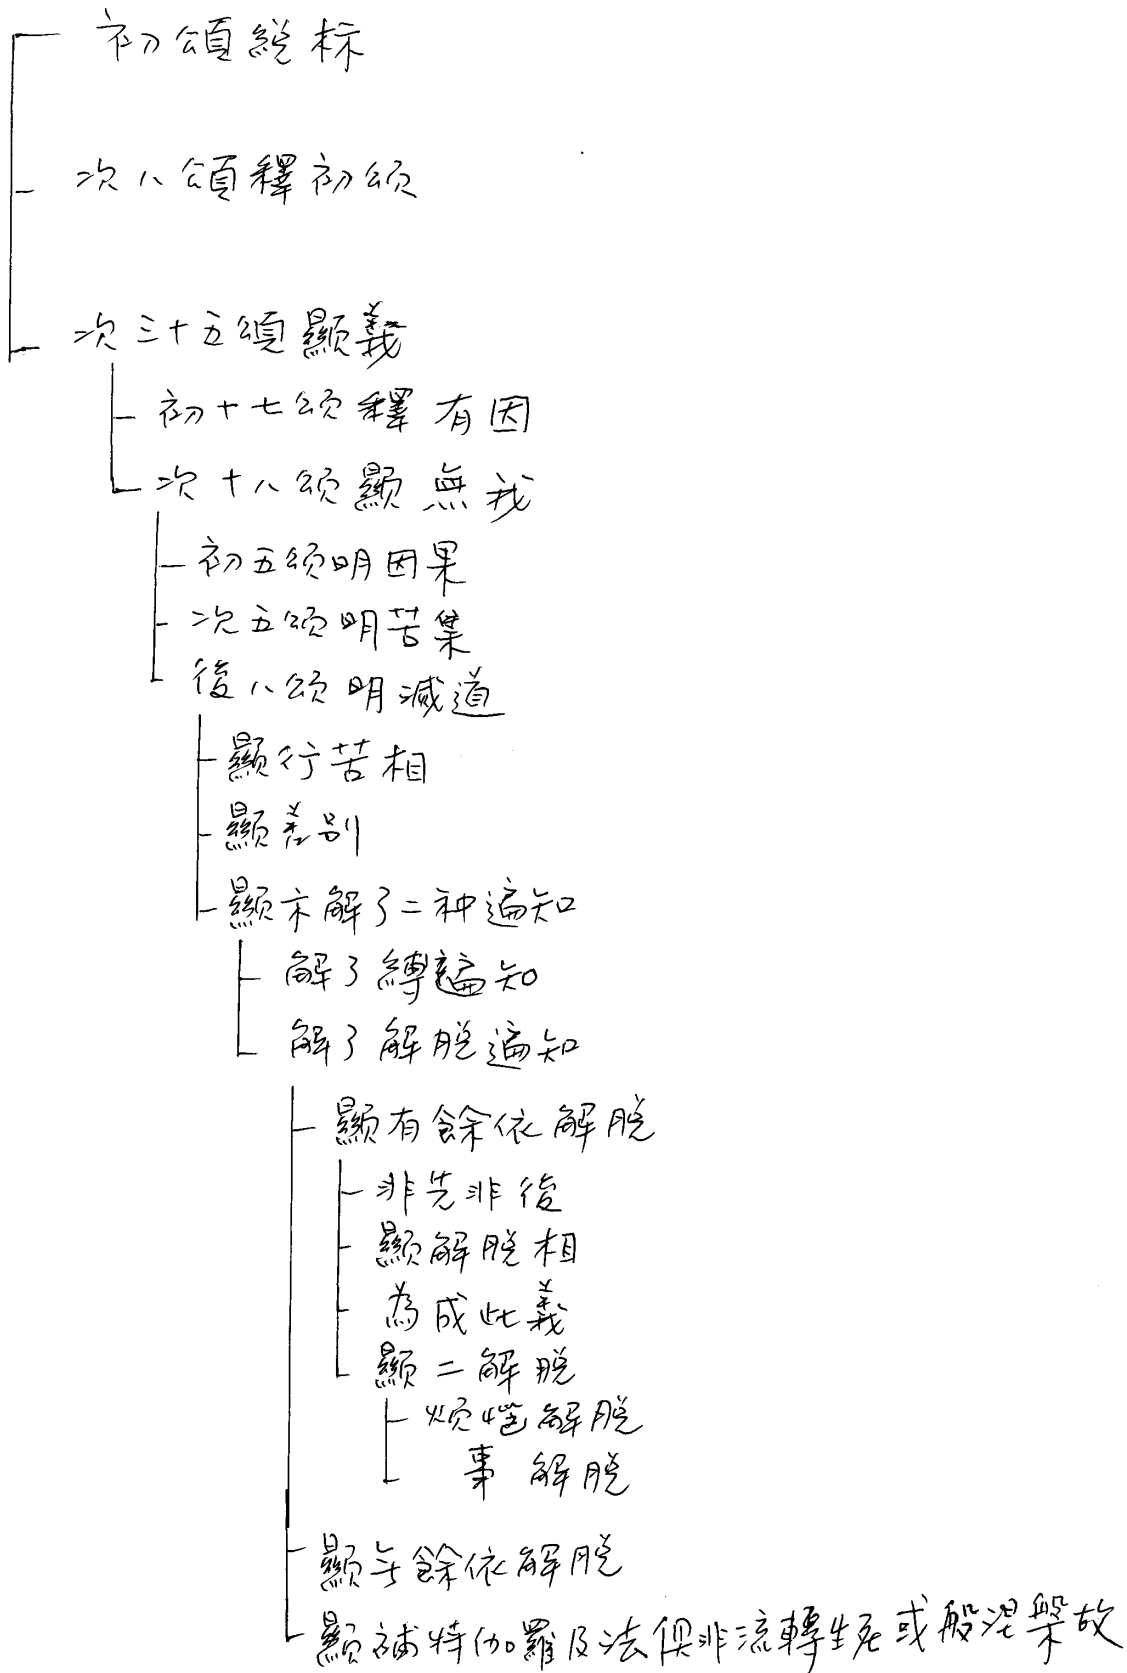 初頌總标
次八頌釋初頌
次三十五頌顯義
初十七頌釋有因
次十八頌顯無我
初五頌明因果
次五頌明苦集
後八頌明滅道
顯行苦相
顯差別
顯示解了二种遍知
解了縛遍知
解了解脫遍知
顯有餘依解脫
非先非後
顯解脫相
為成此義
顯二解脫
煩惱解脫
事解脫
顯无餘依解脫
顯補特伽羅及法俱非流轉生死或般涅槃故